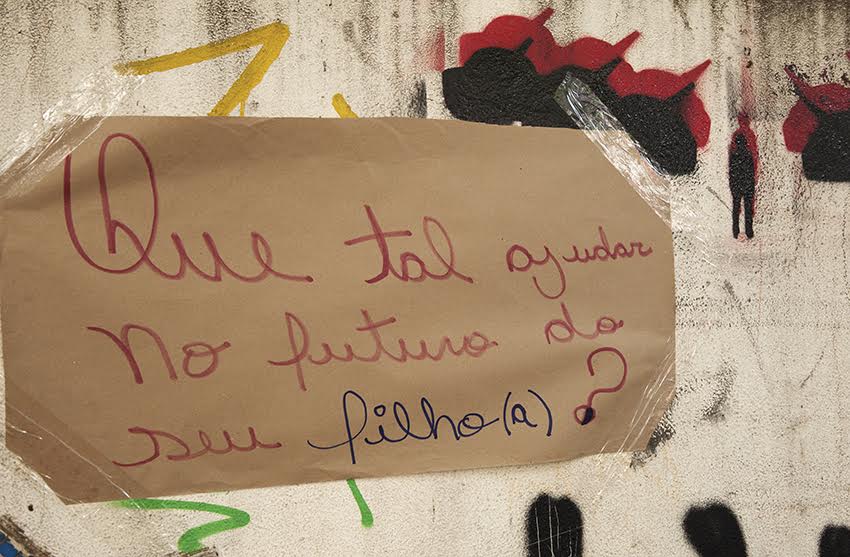 Que tal ajudar
no futuro do
seu filho(a)?